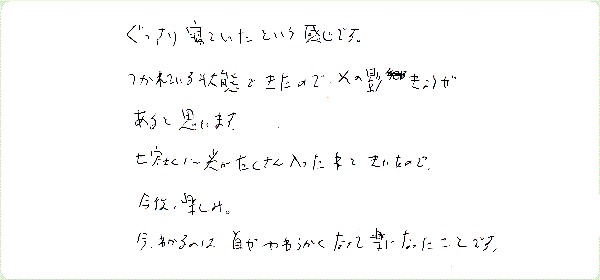 ぐっすり寝ていたという感じです。
つかれている状態できたので、その影きょうが
あると思います。
光がたくさん入った きいたので、
今後、楽しみ。
今、わかるのは 首がやわらかくなって楽になったことです。